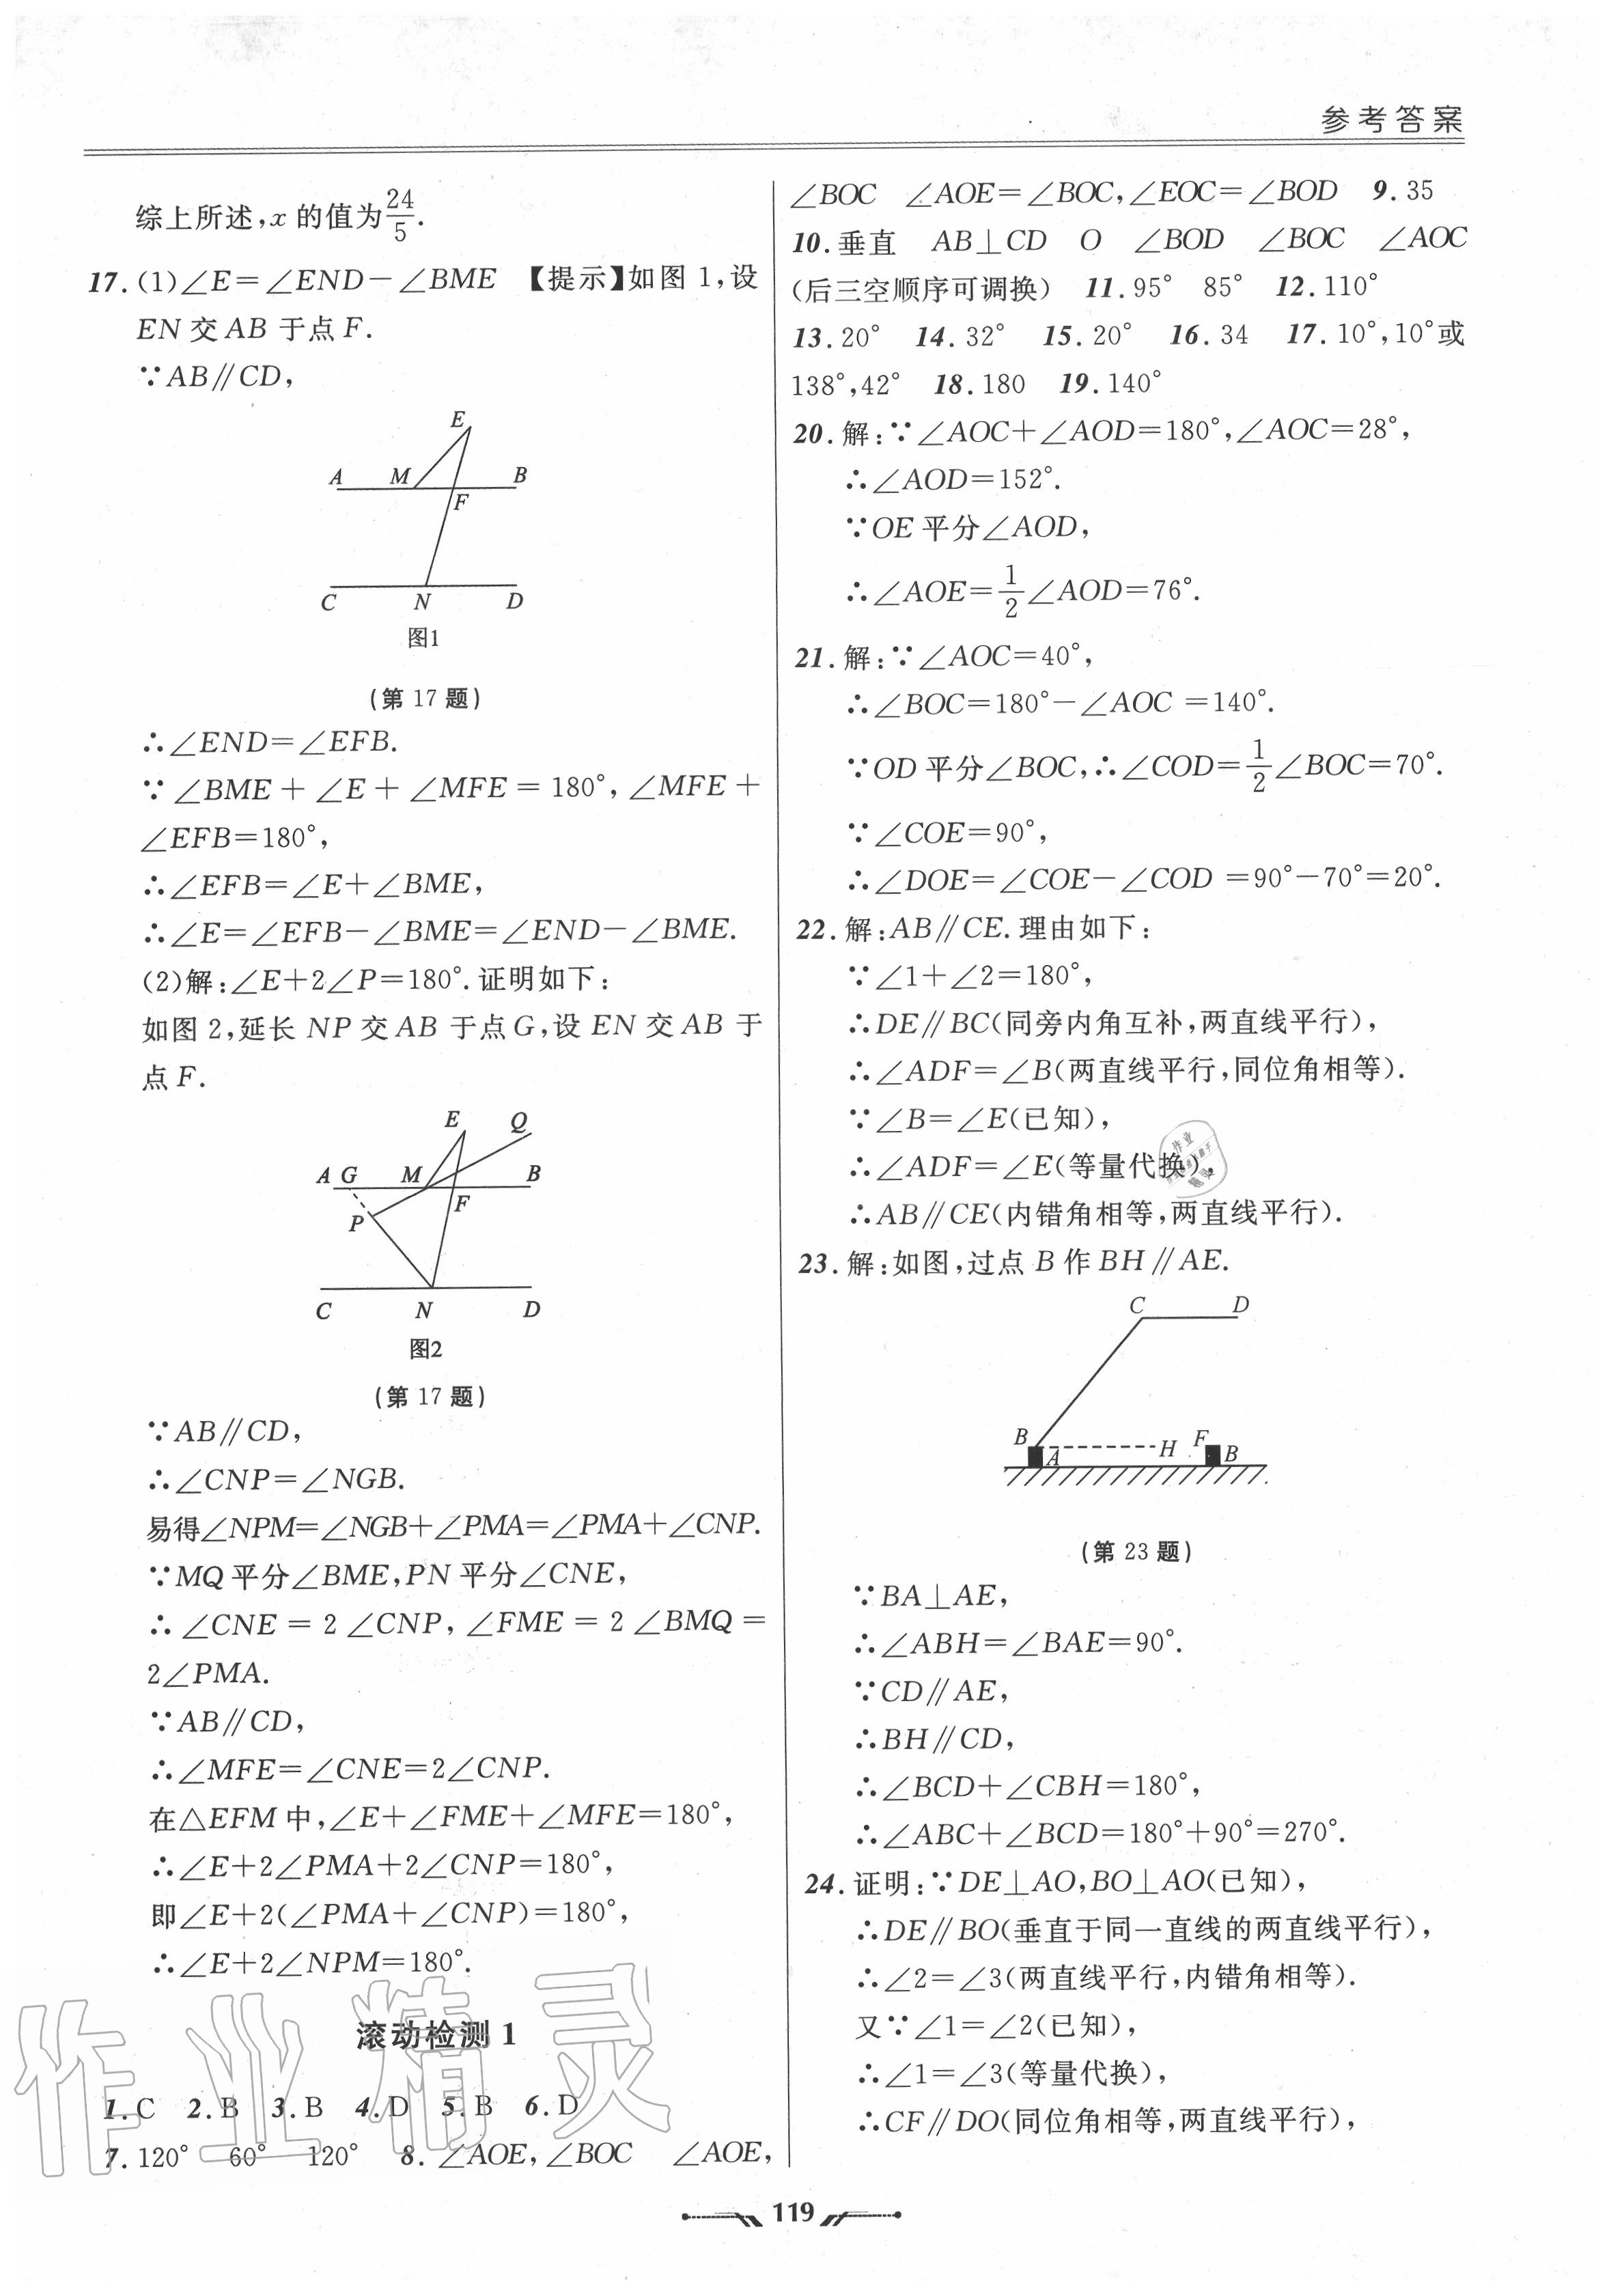 参考答案
综上所述,x 的值为24/5.
17.(1)∠E=∠END-∠BME 【提示】如图 1,设
EN 交 AB 于点 F.
∵AB∥CD,
E
A M B
F
C N D
图1
(第 17 题)
∴∠END=∠EFB.
∵∠BME+∠E+∠MFE=180°,∠MFE+
∠EFB=180°,
∴∠EFB=∠E+∠BME,
∴∠E=∠EFB-∠BME=∠END-∠BME.
(2)解:∠E+2∠P=180°.证明如下:
如图 2,延长 NP 交 AB 于点 G,设 EN 交 AB 于
点 F.
E Q
A G M B
P F
C N D
图2
(第 17 题)
∵AB∥CD,
∴∠CNP=∠NGB.
易得∠NPM=∠NGB+∠PMA=∠PMA+∠CNP.
∵MQ 平分∠BME,PN 平分∠CNE,
∴∠CNE=2∠CNP,∠FME=2∠BMQ=
2∠PMA.
∵AB∥CD,
∴∠MFE=∠CNE=2∠CNP.
在△EFM 中,∠E+∠FME+∠MFE=180°,
∴∠E+2∠PMA+2∠CNP=180°,
即∠E+2(∠PMA+∠CNP)=180°,
∴∠E+2∠NPM=180°.
滚动检测 1
1.C 2.B 3.B 4.D 5.B 6.D
7.120° 60° 120° 8.∠AOE,∠BOC ∠AOE,
∠BOC ∠AOE=∠BOC,∠EOC=∠BOD 9.35
10.垂直 AB⊥CD O ∠BOD ∠BOC ∠AOC
(后三空顺序可调换) 11.95° 85° 12.110°
13.20° 14.32° 15.20° 16.34 17.10°,10°或
138°,42° 18.180 19.140°
20.解:∵∠AOC+∠AOD=180°,∠AOC=28°,
∴∠AOD=152°.
∵OE 平分∠AOD,
∴∠AOE=1/2∠AOD=76°.
21.解:∵∠AOC=40°,
∴∠BOC=180°-∠AOC=140°.
∵OD 平分∠BOC,∴∠COD=1/2∠BOC=70°.
∵∠COE=90°,
∴∠DOE=∠COE-∠COD=90°-70°=20°.
22.解:AB∥CE.理由如下:
∵∠1+∠2=180°,
∴DE∥BC(同旁内角互补,两直线平行),
∴∠ADF=∠B(两直线平行,同位角相等).
∵∠B=∠E(已知),
∴∠ADF=∠E(等量代换),
∴AB∥CE(内错角相等,两直线平行).
23.解:如图,过点 B 作 BH∥AE.
C D
B A H F B
(第 23 题)
∵BA⊥AE,
∴∠ABH=∠BAE=90°.
∵CD∥AE,
∴BH∥CD,
∴∠BCD+∠CBH=180°,
∴∠ABC+∠BCD=180°+90°=270°.
24.证明:∵DE⊥AO,BO⊥AO(已知),
∴DE∥BO(垂直于同一直线的两直线平行),
∴∠2=∠3(两直线平行,内错角相等).
又∵∠1=∠2(已知),
∴∠1=∠3(等量代换),
∴CF∥DO(同位角相等,两直线平行),
作业精灵
119